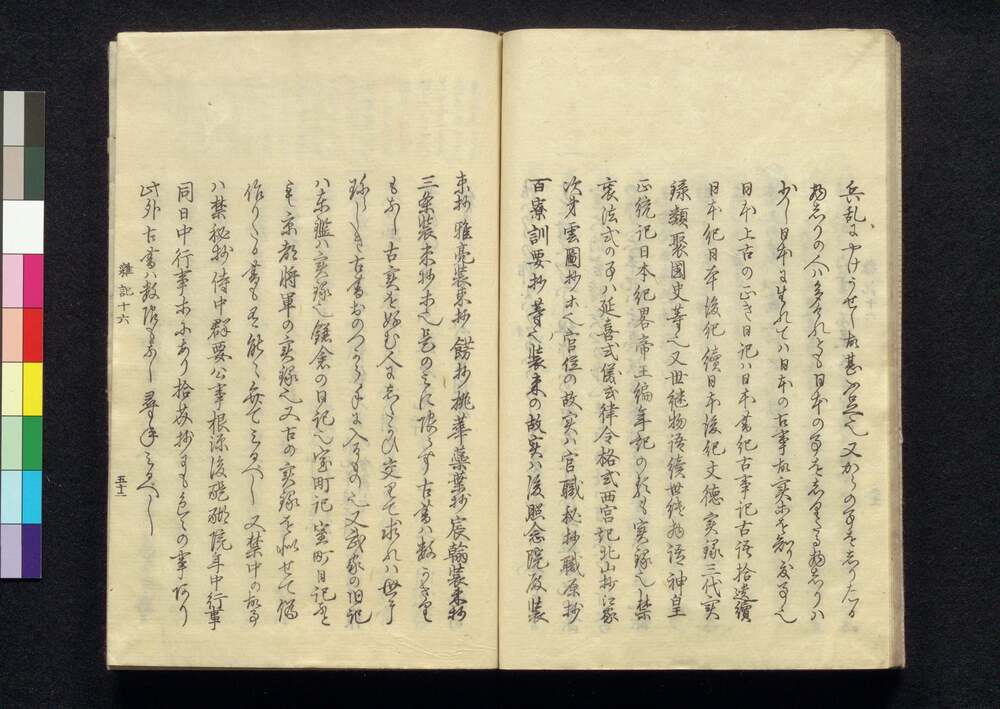 兵乱にやけうせし故甚不足也又からの事をしりたる
物しりの人ハ多けれとも日本の事をしりたる物しりハ
少し日本に生れてハ日本の古事故実を知り度事也
日本上古の正き日記ハ日本書紀古事記古語拾遺續
日本紀日本後紀續日本後紀文徳実録三代実
録類聚國史等也又世継物語續世継物語神皇
正統記日本紀畧帝王編年記の類も実録也禁
裏法式の事ハ延喜式儀式律令格式西宮記北山抄江家
次第雲圖抄等也官位の故実ハ官職秘抄職原抄
百寮訓要抄等也装束の故実ハ後照念院殿装
束抄雅亮装束抄餝抄桃華蘂葉抄宸翰装束抄
三条装束抄等也是のミに限らす古書ハ数かきり
もなし古実を好む人にしたかひ
珎しき古書おのつから手に入るもの也又武家の旧記
ハ東鑑ハ実録也鎌倉の日記也室町記室町日記
も京都将軍の実録也又古の実録を似せて偽
作りたる書も有能々考てミるへし又禁中の故事
ハ禁秘抄侍中群要公事根源後醍醐院年中行事
同日中行事等にあり拾芥抄にも色々の事あり
此外古書ハ数限りなし尋てミるへし
雑記十六
五十一